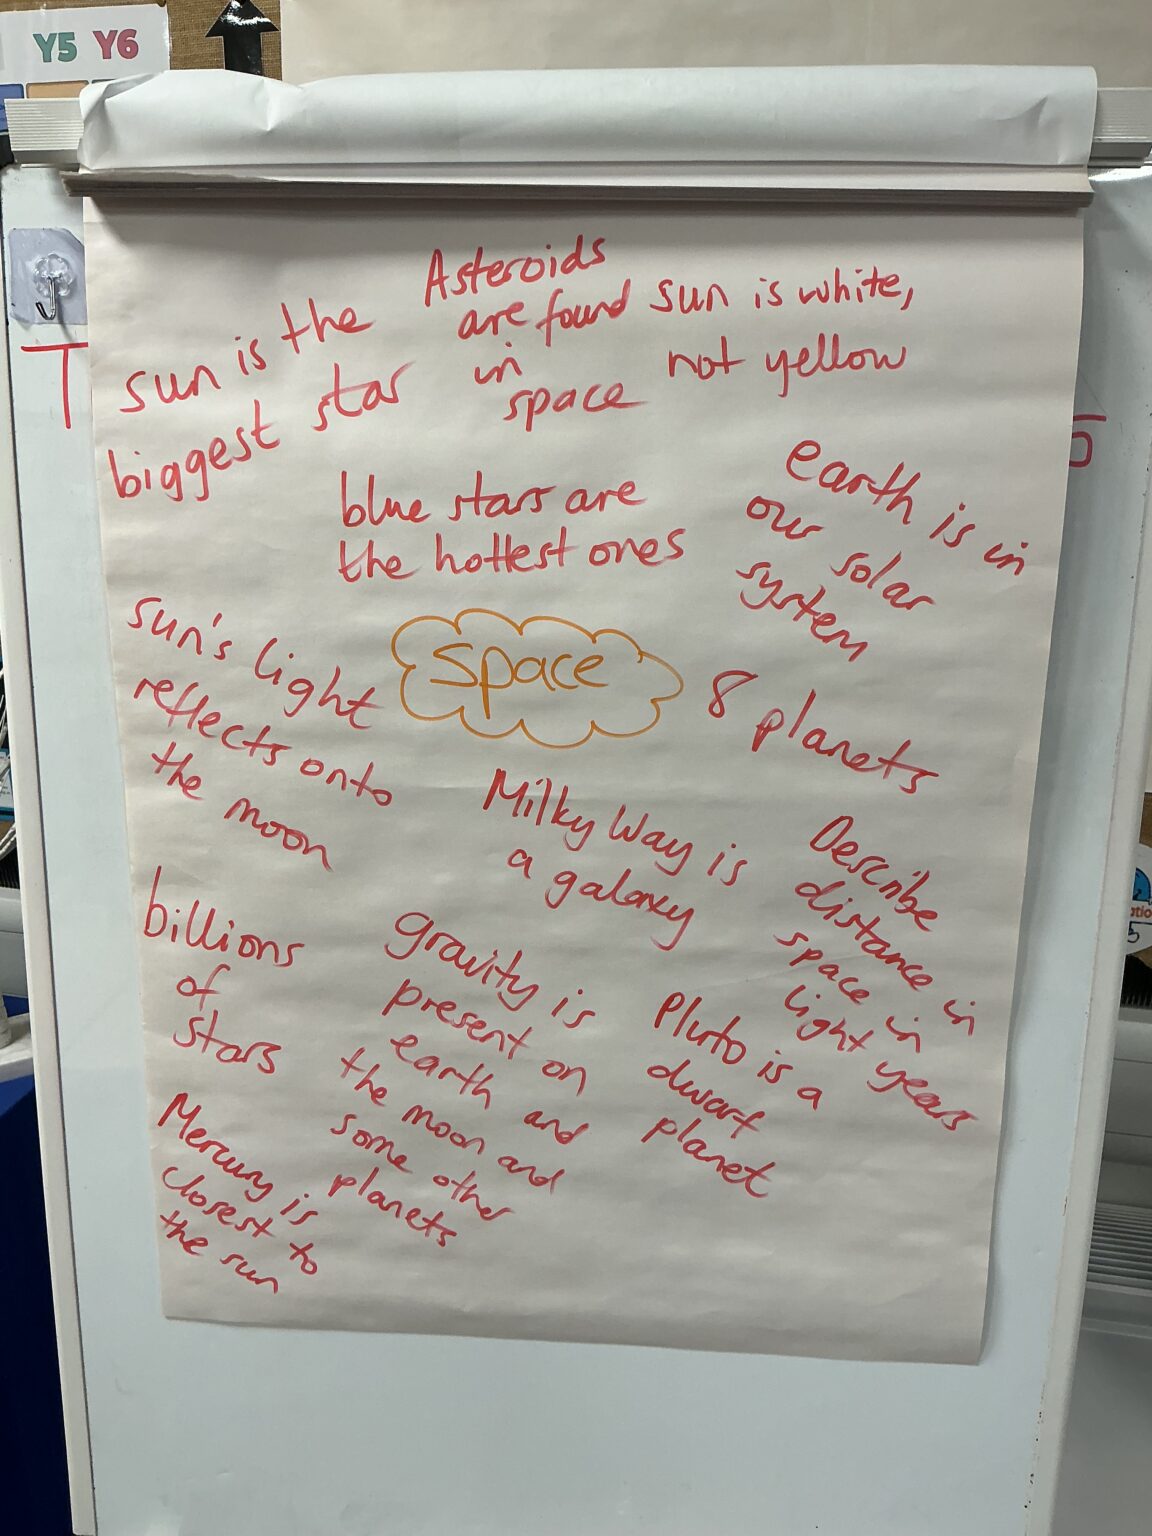 Y5 Y6
sun is the
biggest star
Asteroids
are found
in
space
sun is white,
not yellow
blue stars are
the hottest ones
earth is in
our solar
system
sun's light
reflects onto
the moon
space
8 planets
Milky Way is
a galaxy
Describe
distance in
space in
light years
billions
of
stars
gravity is
present on
earth and
the moon and
some other
planets
Pluto is a
dwarf
planet
Mercury is
closest to
the sun
T
5